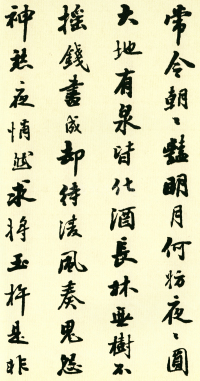 常令朝〻豔明月何妨夜〻圓
大地有泉皆化酒長林無樹不
搖錢書成却待淩風奏鬼怨
神愁夜悄然求將玉杵是非